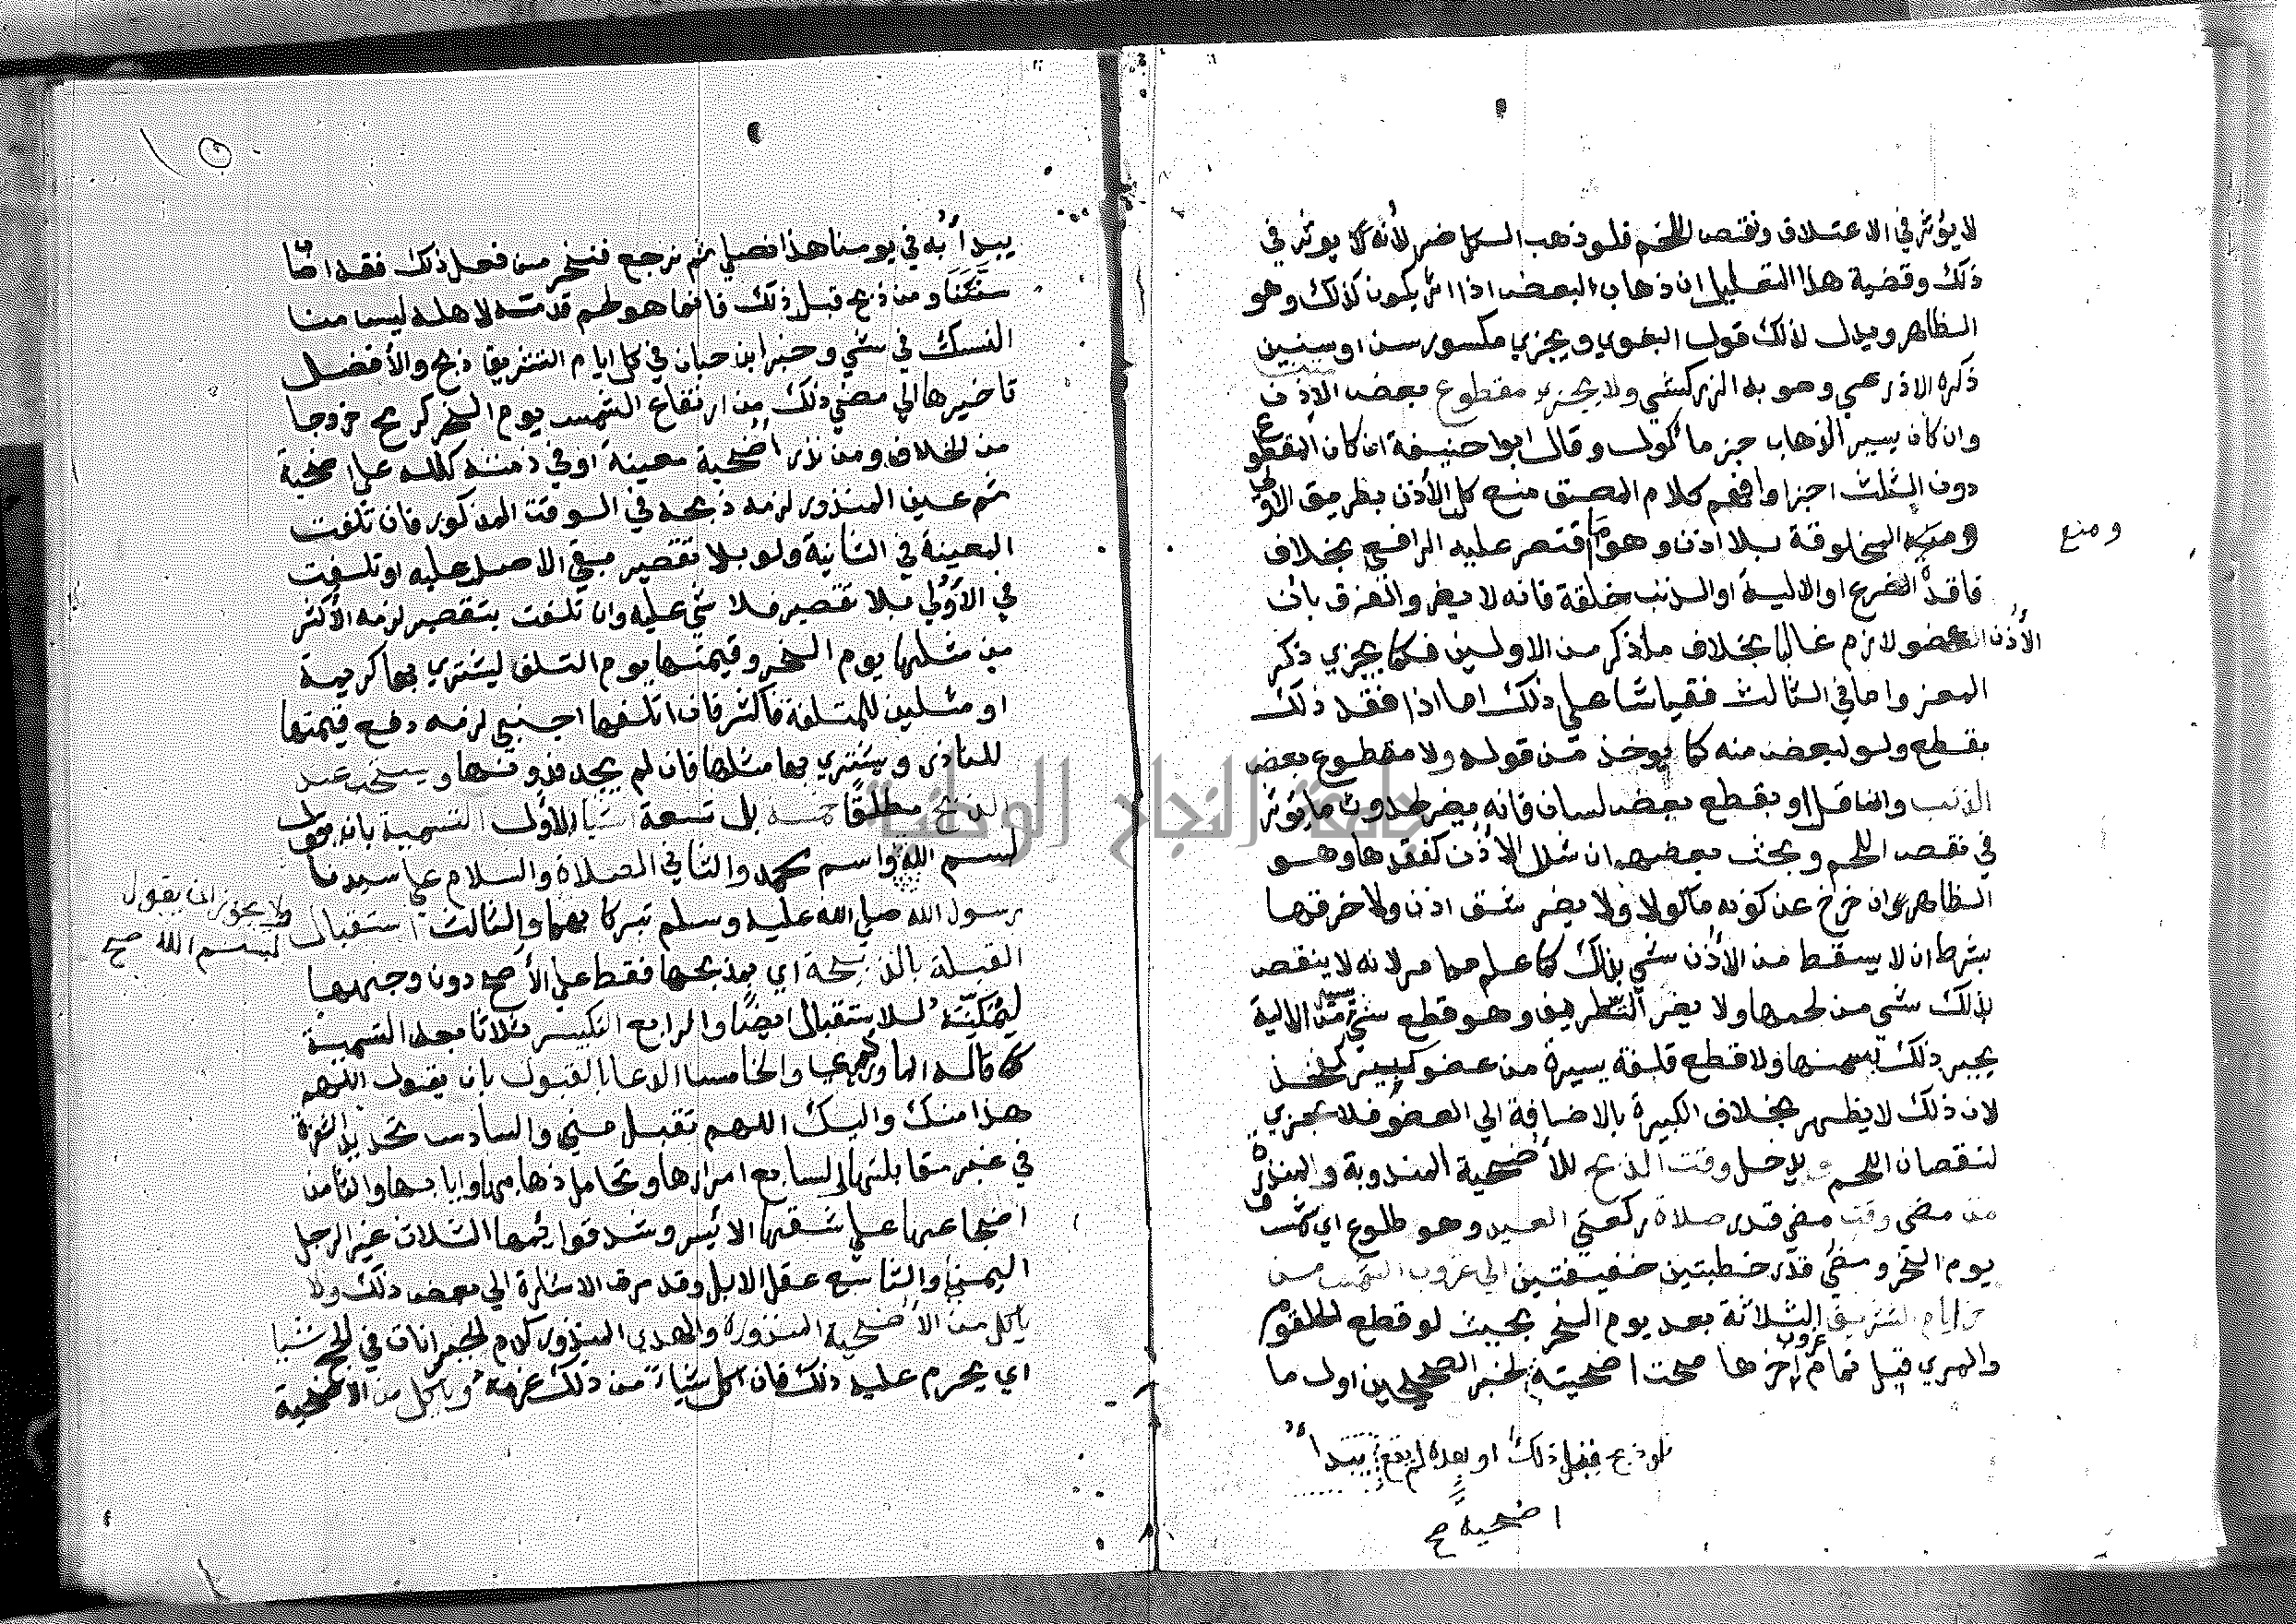 لا يؤثر في الاعتلاف ونقص اللحم فلو ذهب الكل ضر لأنه كا يوثر في
ذلك وقضية هذا التعليل ان ذهاب البعض اذا اثر يكون كذلك وهو
الظاهر ويدل لذلك قول البغوي ويجزي مكسور سن او سنين
ذكره الاذرعي وهو به الزركشي ولا يجزء مقطوع بعض الاذن
وان كان يسير الذهاب جزء مأكول وقال ابوا حنيفة ان كان المقطوع
دون الثلث اجزا وافهم كلام المص منع كل الأذن بطريق الاولى
ومنع المخلوقة بلا اذن وهو ما اقتصر عليه الرافعي بخلاف
ومنع
فاقد الضرع او الالية او الذنب خلقة فانه لا يضر والفرق بان
الأذن العضو لازم غالبا بخلاف ما ذكر من الاولين فكما يجزي ذكر
المعز واما في الثالث فقياسا على ذلك اما اذا فقد ذلك
بقطع ولو لبعض منه كما يوخذ من قوله ولا مقطوع بعض
الذنب والفاقل او بقطع بعض لسان فانه يضر لحدوث ما يؤثر
في نقص اللحم وبحث بعضهم ان شلل الأذن كفقدها وهو
الظاهر وان خرج عن كونه مأكولا ولا يضر شق اذن ولا خرقها
بشرط ان لا يسقط من الأذن شي بذلك كما علم مما مر لانه لا ينقص
بذلك شي من لحمها ولا يضر التطريف وهو قطع شي من الالية
يجبر ذلك بسمنها ولا قطع فلقة يسيرة من عضو كبير كفخذ
لان ذلك لا يظهر بخلاف الكبيرة بالاضافة الي العضو فلا يجزي
لنقصان اللحم ويدخل وقت الذبح للأضحية المندوبة والمنذورة
من مضى وقت مضي قدر صلاة ركعتي العيد وهو طلوع اي شمس
يوم النحر ومضي قدر خطبتين خفيفتين الي غروب الشمس من
ايام التشريق الثلاثة بعد يوم النحر بحيث لو قطع الحلقوم
والمري قبل تمام غروب آخرها صحت اضحيته لخبر الصحيحين اول ما
فلو ذبح قبل ذلك او بعده لم يقع يبدأ
اضحية صح
يبدأ به في يومنا هذا فصلي ثم نرجع فننحر من فعل ذلك فقد اصاب
سنتنا ومن ذبح قبل ذلك فانما هو لحم قدمه لاهله ليس من
النسك في شي وخبر ابن حبان في كل ايام التشريق ذبح والأفضل
تاخيرها الي مضي ذلك من ارتفاع الشمس يوم النحر كرمح خروجا
من الخلاف ومن نذر أضحية معينة او في ذمته كلله علي اضحية
ثم عين المنذور لزمه ذبحه في الوقت المذكور فان تلفت
المعينة في الثانية ولو بلا تقصير بقي الاصل عليه او تلفت
في الأولي بلا تقصير فلا شي عليه وان تلفت بتقصير لزمه الأكثر
من مثلها يوم النحر وقيمتها يوم التلف ليشتري بها كريمة
او مثلين للمتلفة فأكثر فان اتلفها اجنبي لزمه دفع قيمتها
للناذر ويشتري بها مثلها فان لم يجد فدونها ويستحب عند
الذبح مطلقا خمسة بل تسعة اشيا الأول التسمية بان يقول
بسم الله واسم محمد والثاني الصلاة والسلام علي سيدنا
ولا يجوز ان يقول
بسم الله صح
رسول الله صلي الله عليه وسلم تبركا بهما والثالث استقبال
القبلة بالذبيحة اي بمذبحها فقط علي الأصح دون وجهها
ليمكنه الاستقبال ايضا والرابع التكبير ثلاثا بعد التسمية
كما قاله الماوردي والخامس الدعا بالقبول بان يقول اللهم
هذا منك واليك اللهم تقبل مني والسادس تحديد الشفرة
في غير مقابلتها السابع امرارها وتحامل ذهابها وايابها والثامن
اضجاعها علي شقها الايسر وشد قوايمها الثلاث غير الرجل
اليمني والتاسع عقل الابل وقد مرت الاشارة الي بعض ذلك ولا
ياكل من الأضحية المنذورة والهدي المنذور كدم الجبرانات في الحج شيا
اي يحرم عليه ذلك فان اكل شياً من ذلك غرمه وياكل من الاضحية